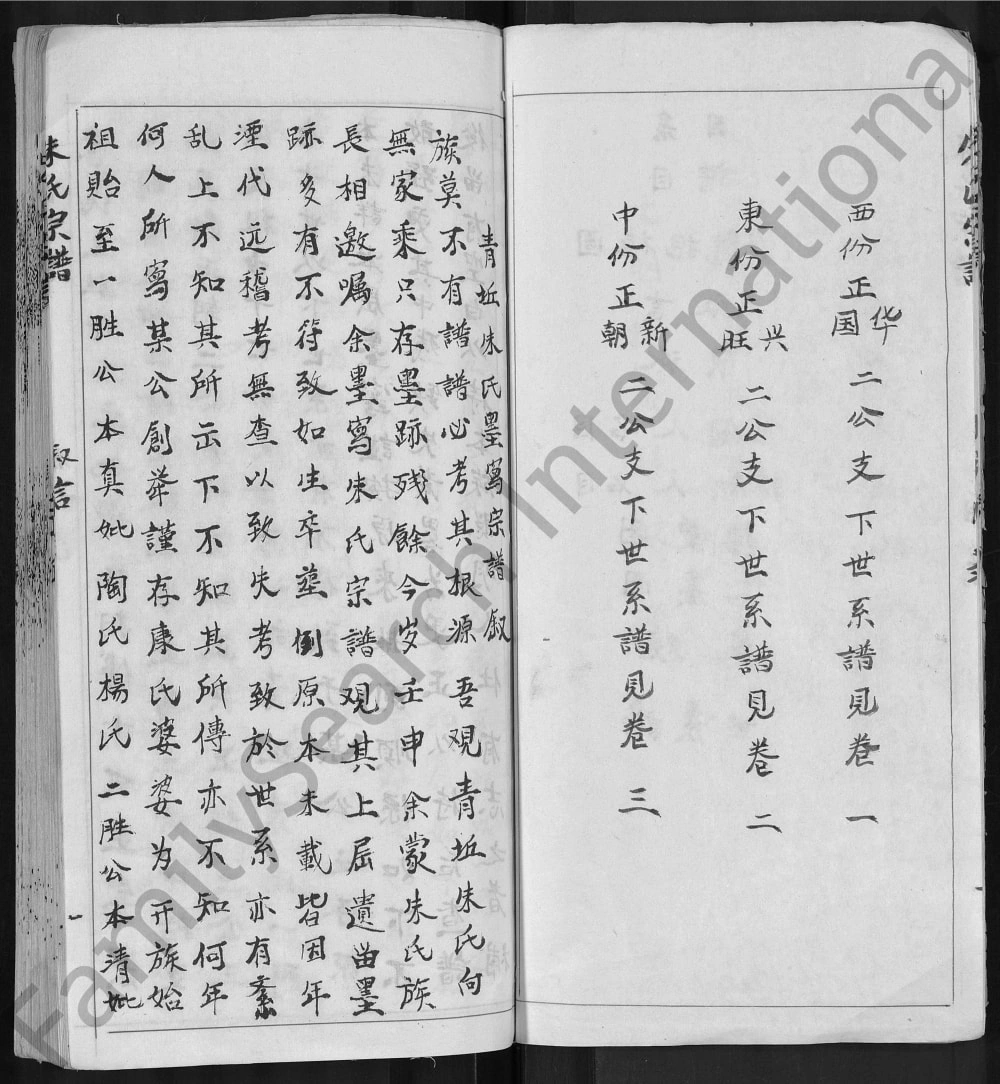 西份正华国 二公支下世系譜見卷一
東份正兴旺 二公支下世系譜見卷二
中份正新朝 二公支下世系譜見卷三
青坵朱氏墨寫宗譜叙
族莫不有譜譜必考其根源 吾观青坵朱氏向
無家乘只存墨跡残餘今岁壬申 余蒙朱氏族
長相邀嘱余墨寫朱氏宗譜观其上屆遺畄墨
跡多有不符致如生卒塟倒原本未載皆因年
湮代远稽考無查以致失考致於世系亦有紊
乱上不知其所云下不知其所傳亦不知何年
何人所寫某公創举謹存康氏婆婆为开族始
祖貽至一胜公本真妣陶氏楊氏二胜公本清妣
朱氏宗譜
叙言
一
FamilySearch International